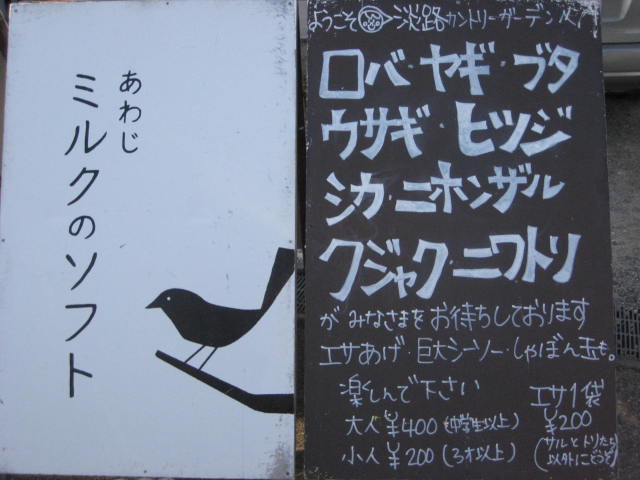 あわじ
ミルクのソフト
ようこそ 淡路カントリーガーデンへ
ロバ・ヤギ・ブタ
ウサギ・ヒツジ
シカ・ニホンザル
クジャク・ニワトリ
が みなさまを お待ちしております
エサあげ・巨大シーソー・しゃぼん玉も。
楽しんで下さい
大人 ¥400 (中学生以上)
小人 ¥200 (3才以上)
エサ1袋
¥200
(サルとトリたち
以外にどうぞ)